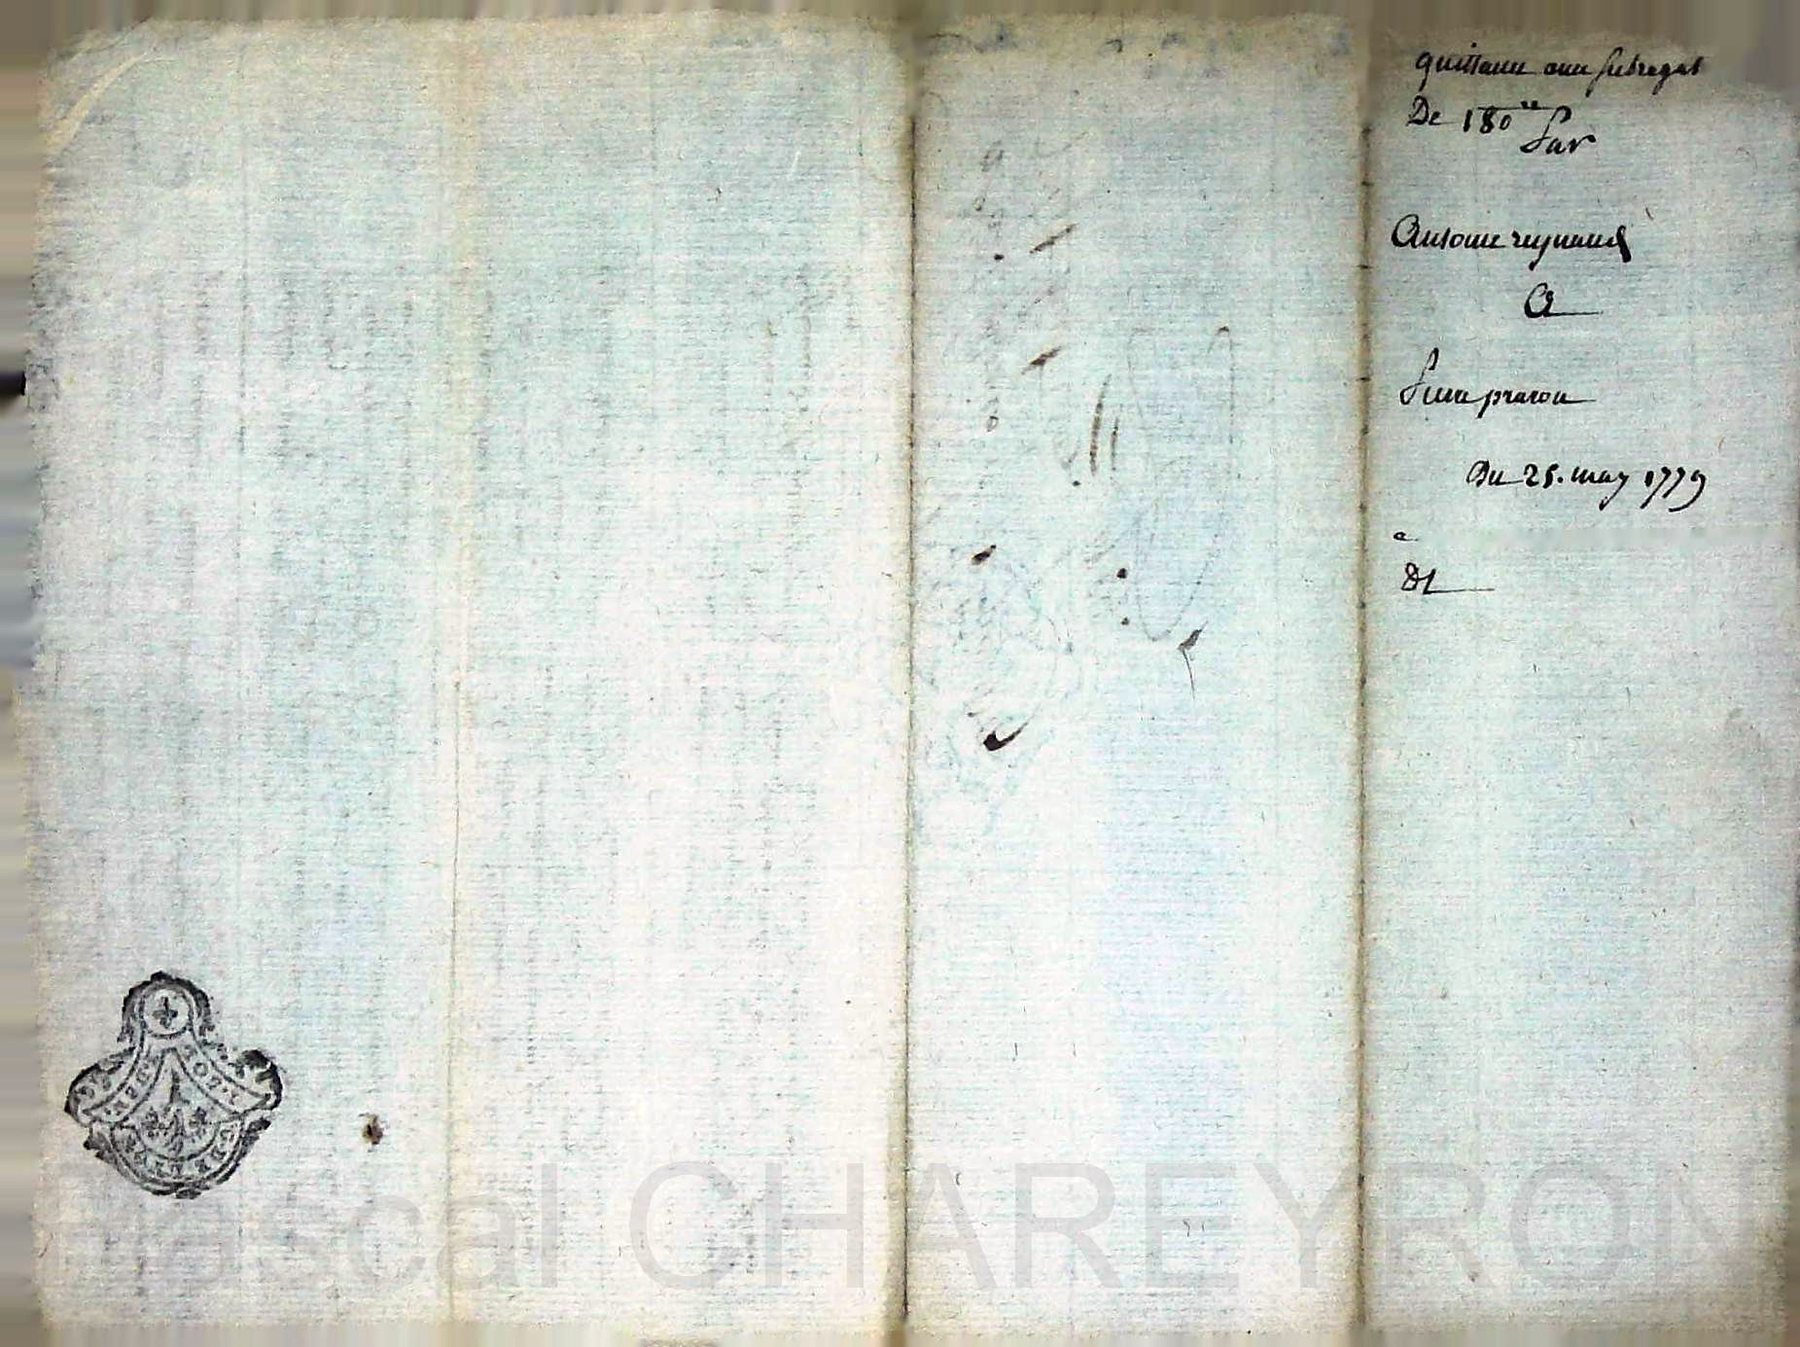 quittance avec subrogat
De 180ᵗᵗ
Par
Antoine reynaud
A
Pierre praron
Du 25. may 1779
a
Pascal CHAREYRON